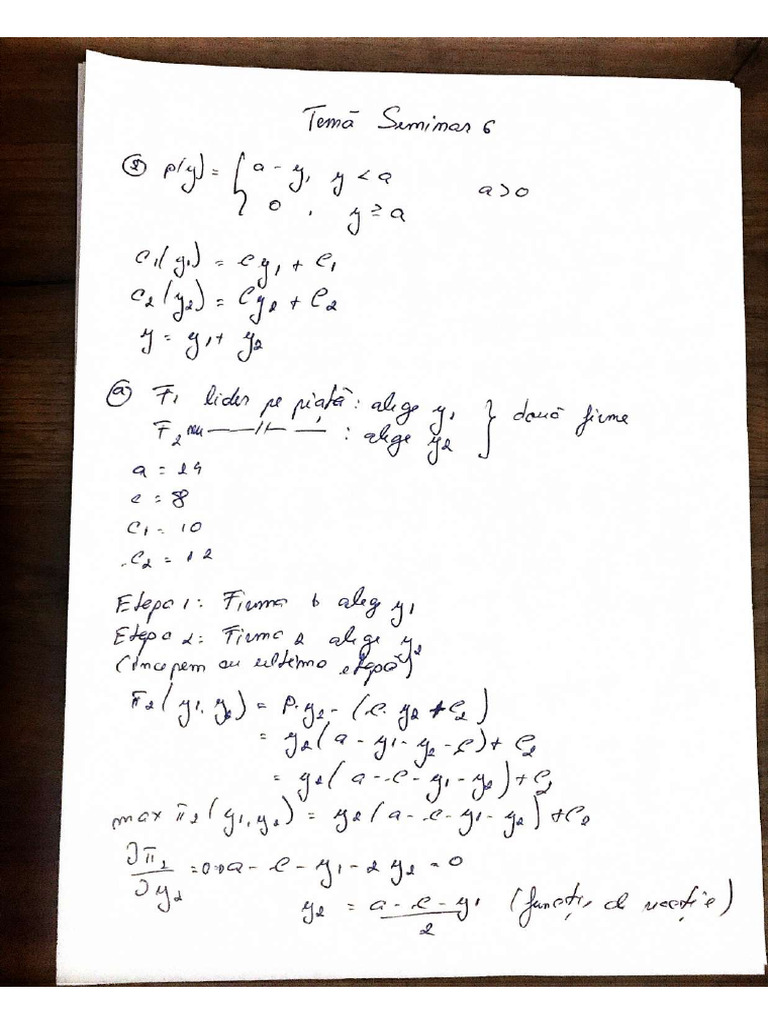 Temă Seminar 6
② p(y) = { a - y, y < a
0, y ≥ a
a > 0
c₁(y₁) = cy₁ + c₁
c₂(y₂) = cy₂ + c₂
y = y₁ + y₂
ⓐ F₁ lider pe piață: alege y₁ } două firme
F₂ nu —//— : alege y₂
a = 24
c = 8
c₁ = 10
c₂ = 12
Etapa 1: Firma 1 alege y₁
Etapa 2: Firma 2 alege y₂
(începem cu ultima etapă)
π₂(y₁, y₂) = p·y₂ - (c·y₂ + c₂)
= y₂(a - y₁ - y₂ - c) + c₂
= y₂(a - c - y₁ - y₂) + c₂
max π₂(y₁, y₂) = y₂(a - c - y₁ - y₂) + c₂
∂π₂/∂y₂ = 0 => a - c - y₁ - 2y₂ = 0
y₂ = (a - c - y₁)/2 (funcția de reacție)